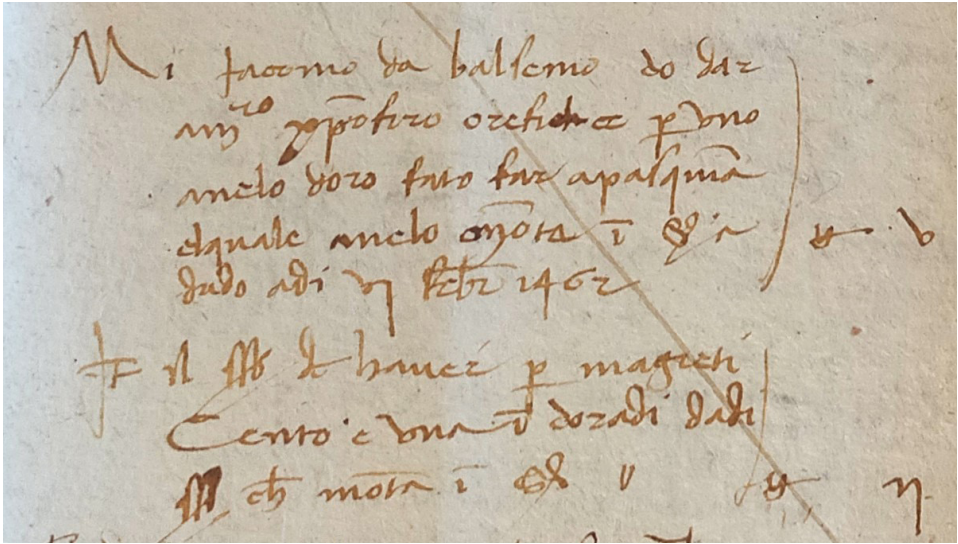 Mi Jacomo da balsemo do dar
a mro xpofiro orefice p uno
anelo doro fato far a pasqua
elquale anelo monta i
dado adi vi febr 1462
il de haver p magreti
Cento e una i doradi dadi
ch monta i v